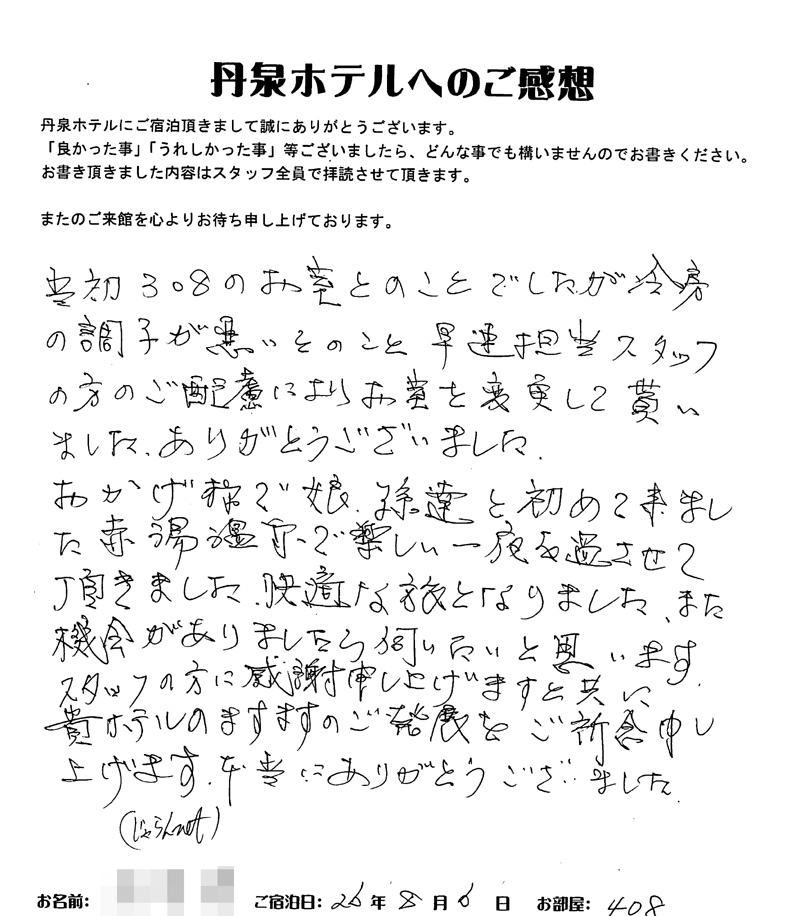 丹泉ホテルへのご感想
丹泉ホテルにご宿泊頂きまして誠にありがとうございます。
「良かった事」「うれしかった事」等ございましたら、どんな事でも構いませんのでお書きください。
お書き頂きました内容はスタッフ全員で拝読させて頂きます。
またのご来館を心よりお待ち申し上げております。
当初308のお室とのことでしたが冷房
の調子が悪いとのこと 早速担当スタッフ
の方のご配慮によりお室を変更して貰い
ました、ありがとうございました。
おかげ様で娘、孫達と初めて来まし
た赤湯温泉で楽しい一夜を過させて
頂きました、快適な旅となりました、また
機会がありましたら伺いたいと思います
スタッフの方に感謝申し上げますと共に
貴ホテルのますますのご発展をご祈念申し
上げます。本当にありがとうございました。
(じゃらんnet)
お名前: ご宿泊日: 26年 8月 6日 お部屋: 408